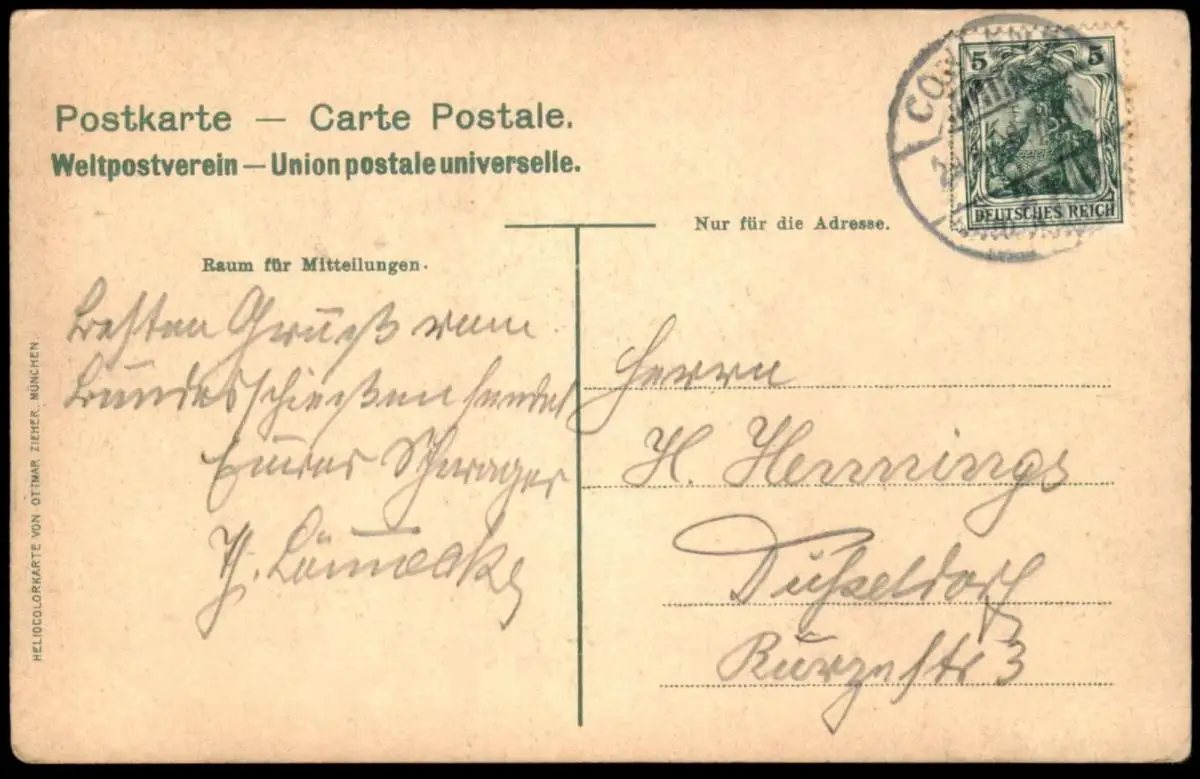 Postkarte — Carte Postale.
Weltpostverein — Union postale universelle.
5 5
DEUTSCHES REICH
Nur für die Adresse.
Raum für Mitteilungen.
Besten Gruß vom
Bundesschießen sendet
Euer Schwager
H.
Herrn
H. Hennings
Düsseldorf
Kurzestr 3
HELIOCOLORKARTE VON OTTMAR ZIEHER, MÜNCHEN.